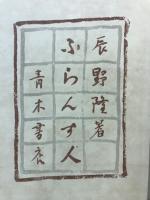 辰野隆著
ふらんす人
青木書店